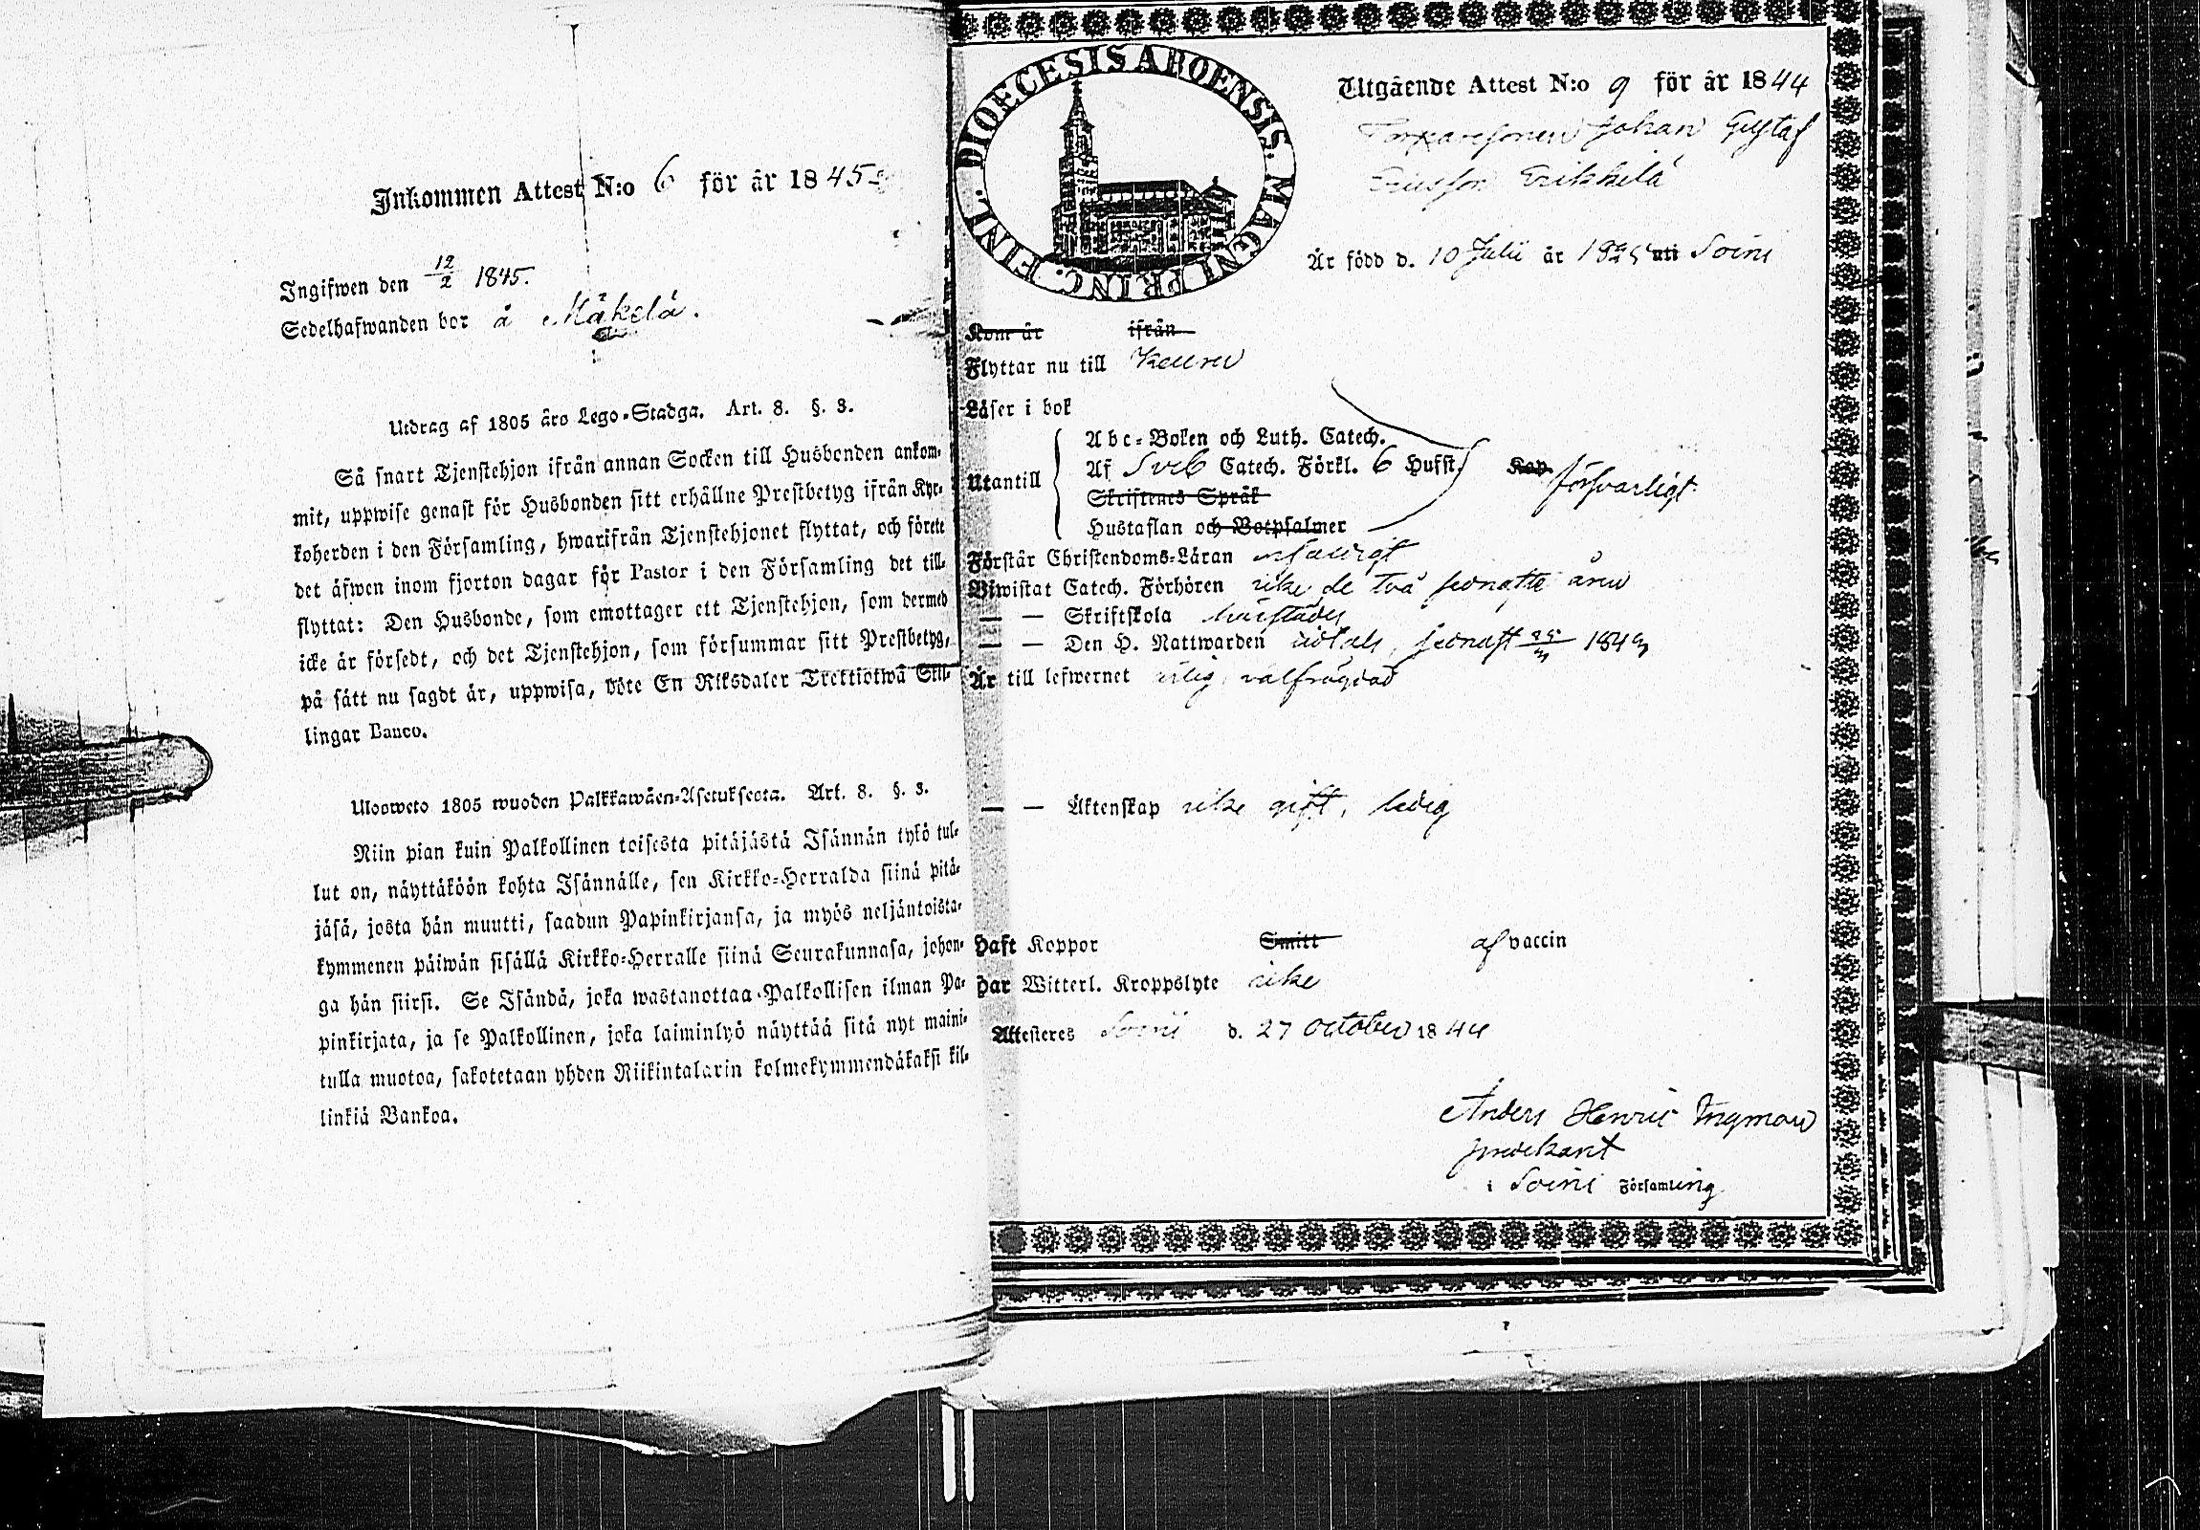 Inkommen Attest N:o 6 för år 1845
Ingifwen den 12/2 1845.
Sedelhafwanden bor å Mäkelä.
Utdrag af 1805 års Lego-Stadga. Art. 8. §. 3.
Så snart Tjenstehjon ifrån annan Socken till Husbonden ankom-
mit, uppwise genast för Husbonden sitt erhållne Prestbetyg ifrån Kyr-
koherden i den Församling, hwarifrån Tjenstehjonet flyttat, och förete
det äfwen inom fjorton dagar för Pastor i den Församling det till-
flyttat: Den Husbonde, som emottager ett Tjenstehjon, som dermed
icke är försedt, och det Tjenstehjon, som försummar sitt Prestbetyg,
på sätt nu sagdt är, uppwisa, böte En Riksdaler Trettiotwå Skil-
lingar Banco.
Uloosweto 1805 wuoden Palkkawäen-Asetuksesta. Art. 8. §. 3.
Niin pian kuin Palkollinen toisesta pitäjästä Isännän tykö tul-
lut on, näyttäköön kohta Isännälle, sen Kirkko-Herralda siinä pitä-
jäsä, josta hän muutti, saadun Papinkirjansa, ja myös neljäntoista-
kymmenen päiwän sisällä Kirkko-Herralle siinä Seurakunnasa, johon-
ga hän siirsi. Se Isändä, joka wastanottaa Palkollisen ilman Pa-
pinkirjata, ja se Palkollinen, joka laiminlyö näyttää sitä nyt maini-
tulla muotoa, sakotetaan yhden Riikintalarin kolmekymmendäkaksi kil-
linkiä Bankoa.
DIOECESIS ABOENSIS. MAGNI PRINC. FINL.
Utgående Attest N:o 9 för år 1844
Torparesonen Johan Gustaf
Ericsson Erikkilä
Är född d. 10 Julii år 1825 uti Soini
Kom år ifrån
Flyttar nu till Keuru
Läser i bok
Abc-Boken och Luth. Catech.
Utantill Af Sveb Catech. Förkl. 6 Hufst. Kap. försvarligt
Skriftenes Språk
Hustaflan och Botpsalmer
Förstår Christendoms-Läran
Biwistat Catech. Förhören icke de två sednaste åren
— — Skriftskola härstädes
— — Den H. Nattwarden sednast 184
Är till lefwernet ärlig, välfrägdad
— — Äktenskap icke gift, ledig
Haft Koppor Smitt af vaccin
Har Witterl. Kroppslyte icke
Attesteres Soini d. 27 October 1844
Anders Henric Ingman
predikant
i Soini Församling